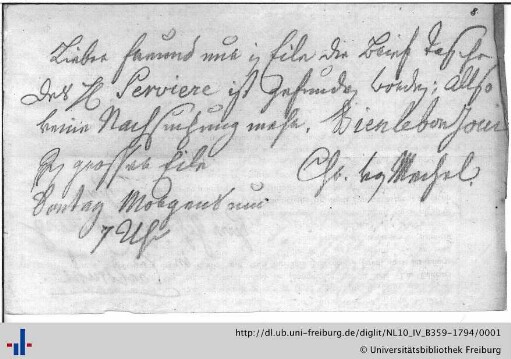 8.
Lieber Freund nur in Eile die Brief Tasche
des H Serviere ist gefunden worden; Also
keine Nachsuchung mehr. Bien le bon jour
In grosser Eile Chr. von Mechel.
Sontag Morgens um
7 Uhr
http://dl.ub.uni-freiburg.de/diglit/NL10_IV_B359-1794/0001
© Universitätsbibliothek Freiburg